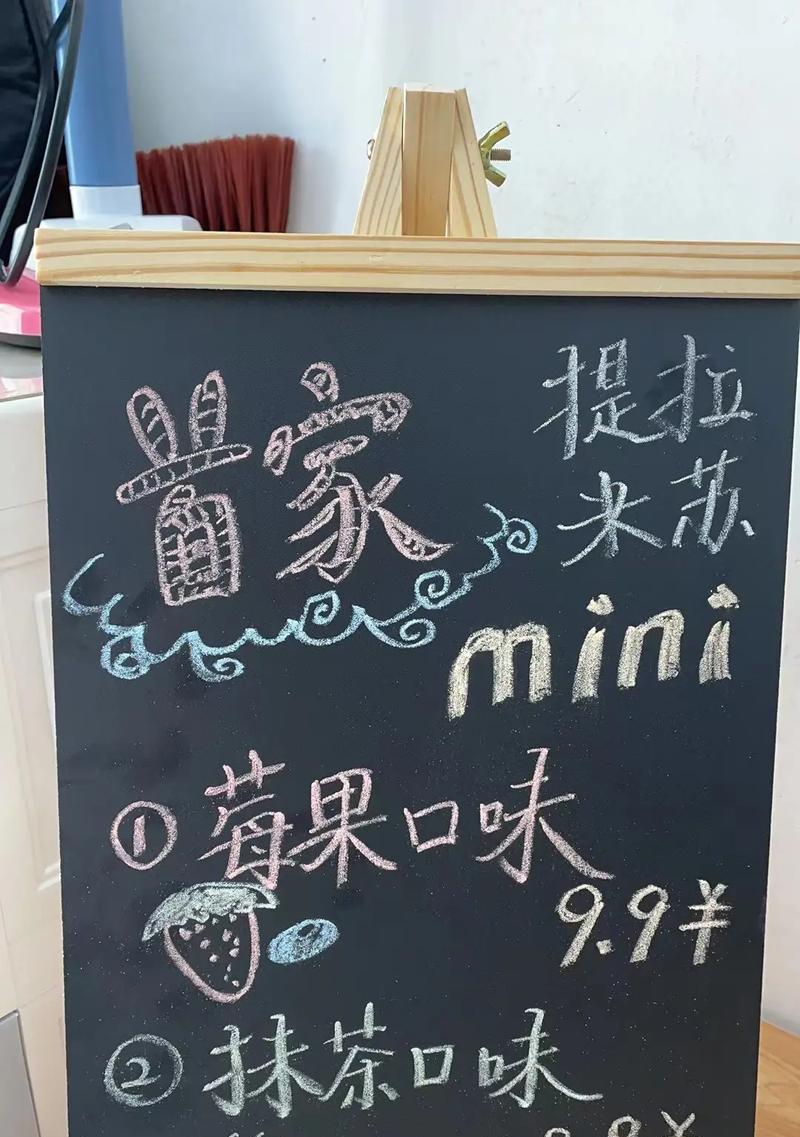 苗家
提拉
米苏
mini
①莓果口味
9.9¥
②抹茶口味